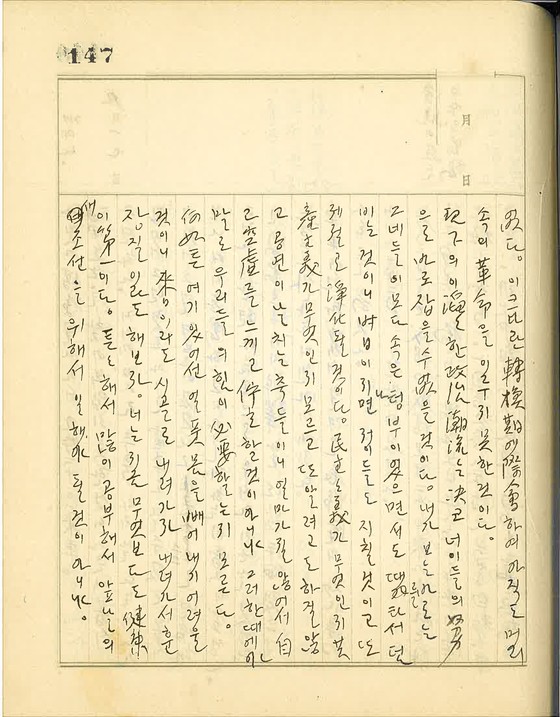 147
月
日
없다. 이 크다란 轉換期에 際會하여 아직도 머리
속의 革命을 이루지 못한 것이다.
現下의 이 한 政治潮流는 決코 너이들의 努
으로 바로잡을 수 없을 것이다. 내가 보는 바로는
그네들이 모다 속은 텅 부이었으면서도 때를 타서 덤
비는 것이니 밤이 되면 저이들도 지칠 것이고 또
제절로 淨化될 것이다. 民主主義가 무엇인지 共
産主義가 무엇인지 모르고 또 알려고도 하질 않
고 공연이 날치는 축들이니 얼마 가질 않어서 自
己 空虛를 느끼고 停止할 것이 아니냐 그러한 때에야
말로 우리들의 힘이 必要할는지 모른다.
何如튼 여기 있어선 얼풋 몸을 빼어내기 어려울
것이니 來日이라도 시골로 내려가라 내려가서 훈
장질이라도 해보라. 너는 지금 무엇보다도 健康
이 第一이다. 튼튼해서 많이 공부해서 앞날의
새조선을 위해서 일해야 될 것이 아니냐.